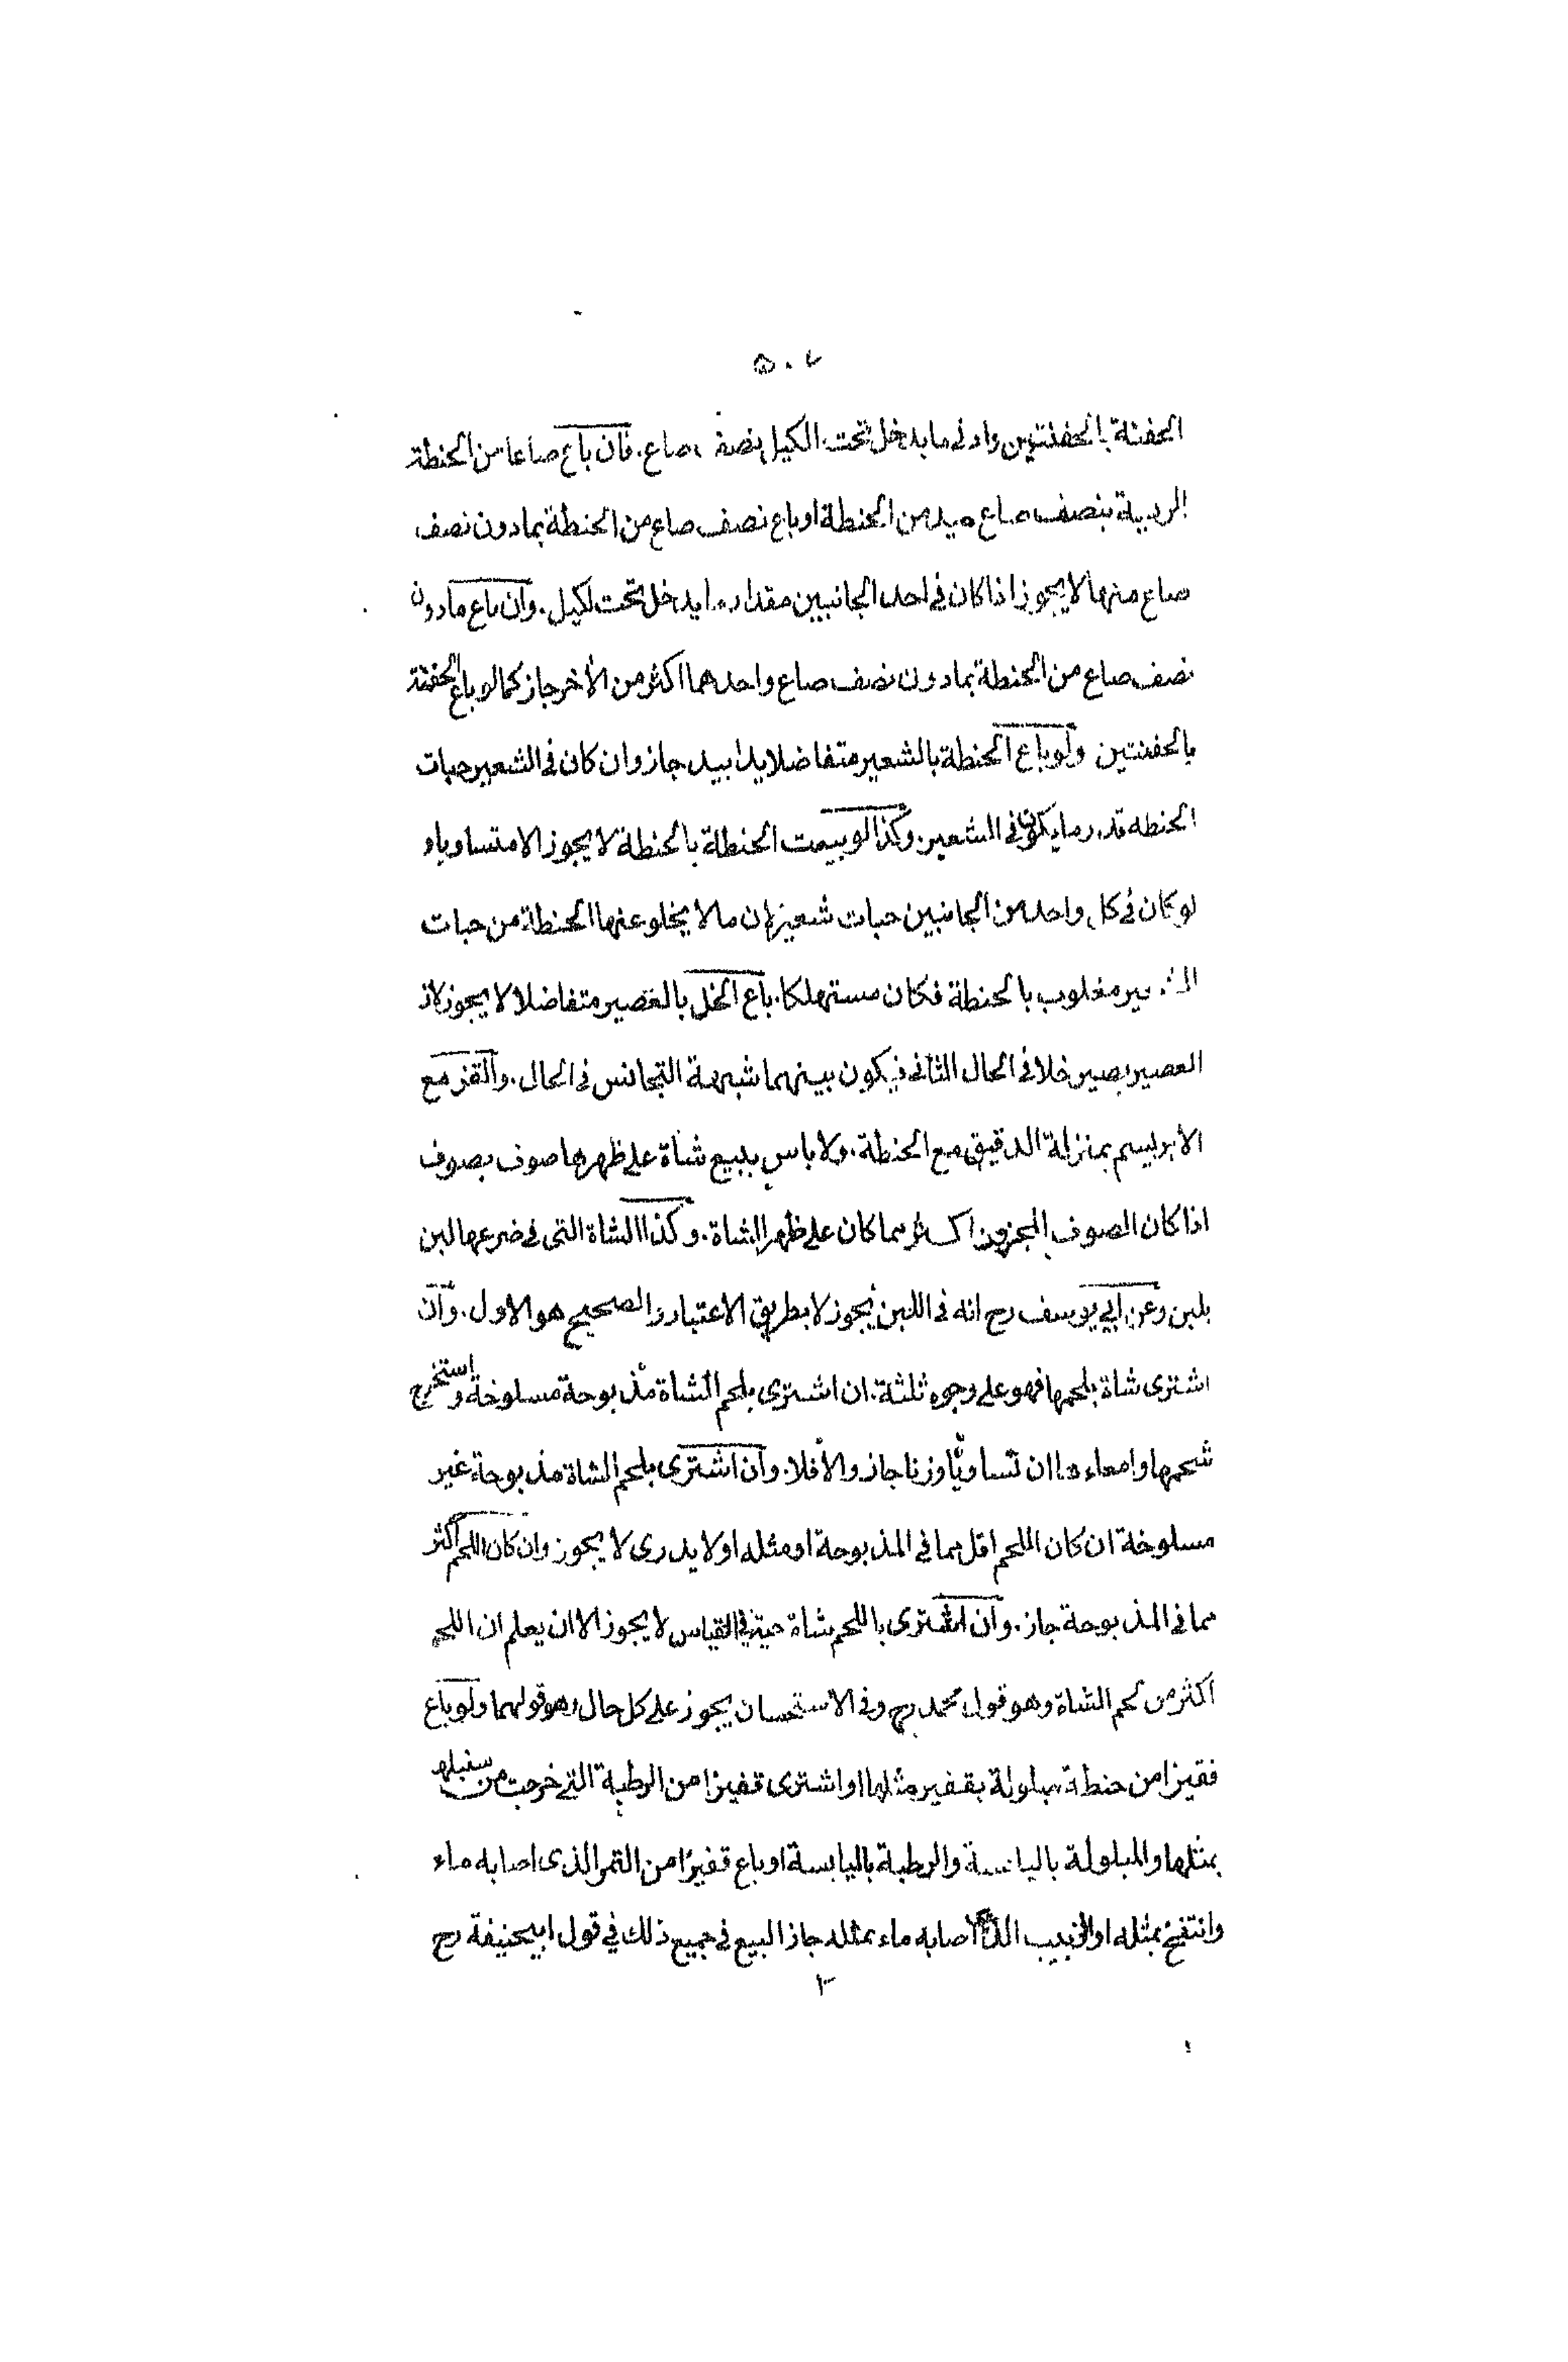 ٥٠٧
الحفنة بالحفنتين وادنى ما يدخل تحت الكيل نصف صاع. فان باع صاعا من الحنطة
الردية بنصف صاع جيد من الحنطة او باع نصف صاع من الحنطة بما دون نصف
صاع منها لا يجوز اذا كان في احد الجانبين مقدار ما يدخل تحت لكيل. وان باع ما دون
نصف صاع من الحنطة بما دون نصف صاع واحدهما اكثر من الآخر جاز كما لو باع الحفنة
بالحفنتين ولو باع الحنطة بالشعير متفاضلا يدا بيد جاز وان كان في الشعير حبات
الحنطه قدر ما يكون في الشعير. وكذا لو بيعت الحنطة بالحنطة لا يجوز الا متساويا و
لو كان في كل واحد من الجانبين حبات شعير لان ما لا يخلو عنها الحنطة من حبات
الشعير مغلوب بالحنطة فكان مستهلكا. باع الخل بالعصير متفاضلا لا يجوز لان
العصير يصير خلا في الحال الثاني فيكون بينهما شبهة التجانس في الحال. والقز مع
الابريسم بمنزلة الدقيق مع الحنطة. ولا باس ببيع شاة على ظهرها صوف بصوف
اذا كان الصوف المجزوز اكثر مما كان على ظهر الشاة. وكذا الشاة التي في ضرعها لبن
بلبن وعن ابي يوسف رح انه في اللبن يجوز لا بطريق الاعتبار والصحيح هو الاول. وان
اشترى شاة بلحمها فهو على وجوه ثلثة. ان اشترى بلحم الشاة مذبوحة مسلوخة واستخرج
شحمها وامعاءها ان تساويا وزنا جاز والا فلا. وان اشترى بلحم الشاة مذبوحة غير
مسلوخة ان كان اللحم اقل مما في المذبوحة او مثله او لا يدرى لا يجوز وان كان اللحم اكثر
مما في المذبوحة جاز. وان اشترى باللحم شاة حية في القياس لا يجوز الا ان يعلم ان اللحم
اكثر من لحم الشاة وهو قول محمد رح وفي الاستحسان يجوز على كل حال وهو قولهما ولو باع
قفيزا من حنطة مبلولة بقفيز مثلها او اشترى قفيزا من الرطبة التي خرجت من سنبلها
بمثلها والمبلولة باليابسة والرطبة باليابسة او باع قفيزا من التمر الذي اصابه ماء
وانتفخ بمثله او الزبيب الذي اصابه ماء بمثله جاز البيع في جميع ذلك في قول ابيحنيفة رح